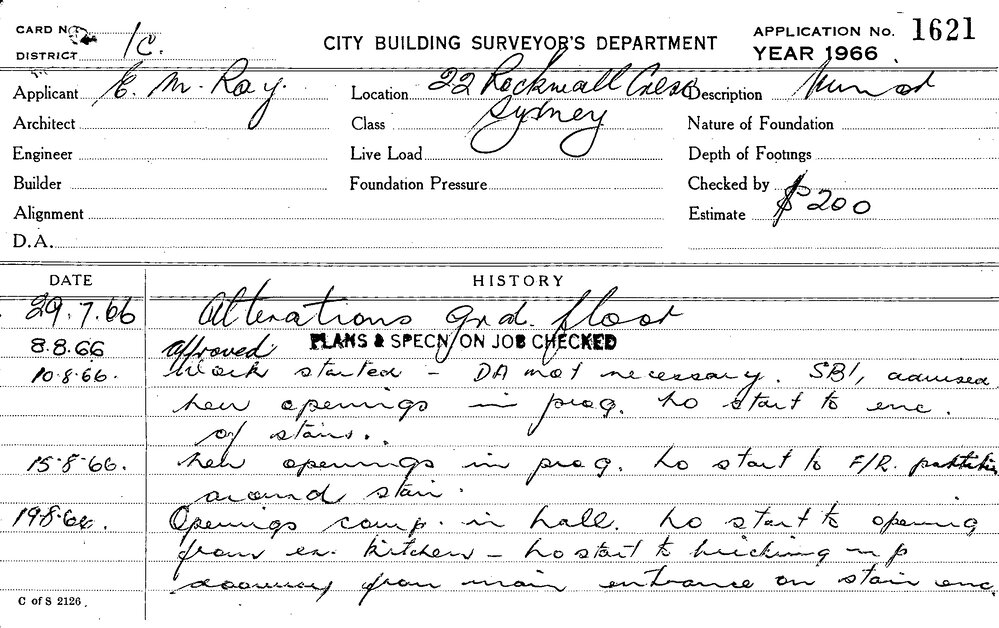 CARD No.
DISTRICT 1C.
CITY BUILDING SURVEYOR'S DEPARTMENT
APPLICATION No. 1621
YEAR 1966
Applicant E. M. Ray.
Location 22 Rockwall Cres
Sydney
Description
Architect
Class
Nature of Foundation
Engineer
Live Load
Depth of Footings
Builder
Foundation Pressure
Checked by
Alignment
Estimate $200
D.A.
DATE
HISTORY
29.7.66 Alterations grd. floor
8.8.66 approved PLANS & SPECN ON JOB CHECKED
10.8.66. Work started - DA not necessary. SBI, advised
new openings in prog. no start to enc.
of stairs.
15-8-66. new openings in prog. no start to F/R.
around stair.
19.8.66. Openings comp. in hall. no start to opening
from ex. kitchen - no start to bricking up
doorway from main entrance on stair enc.
C of S 2126